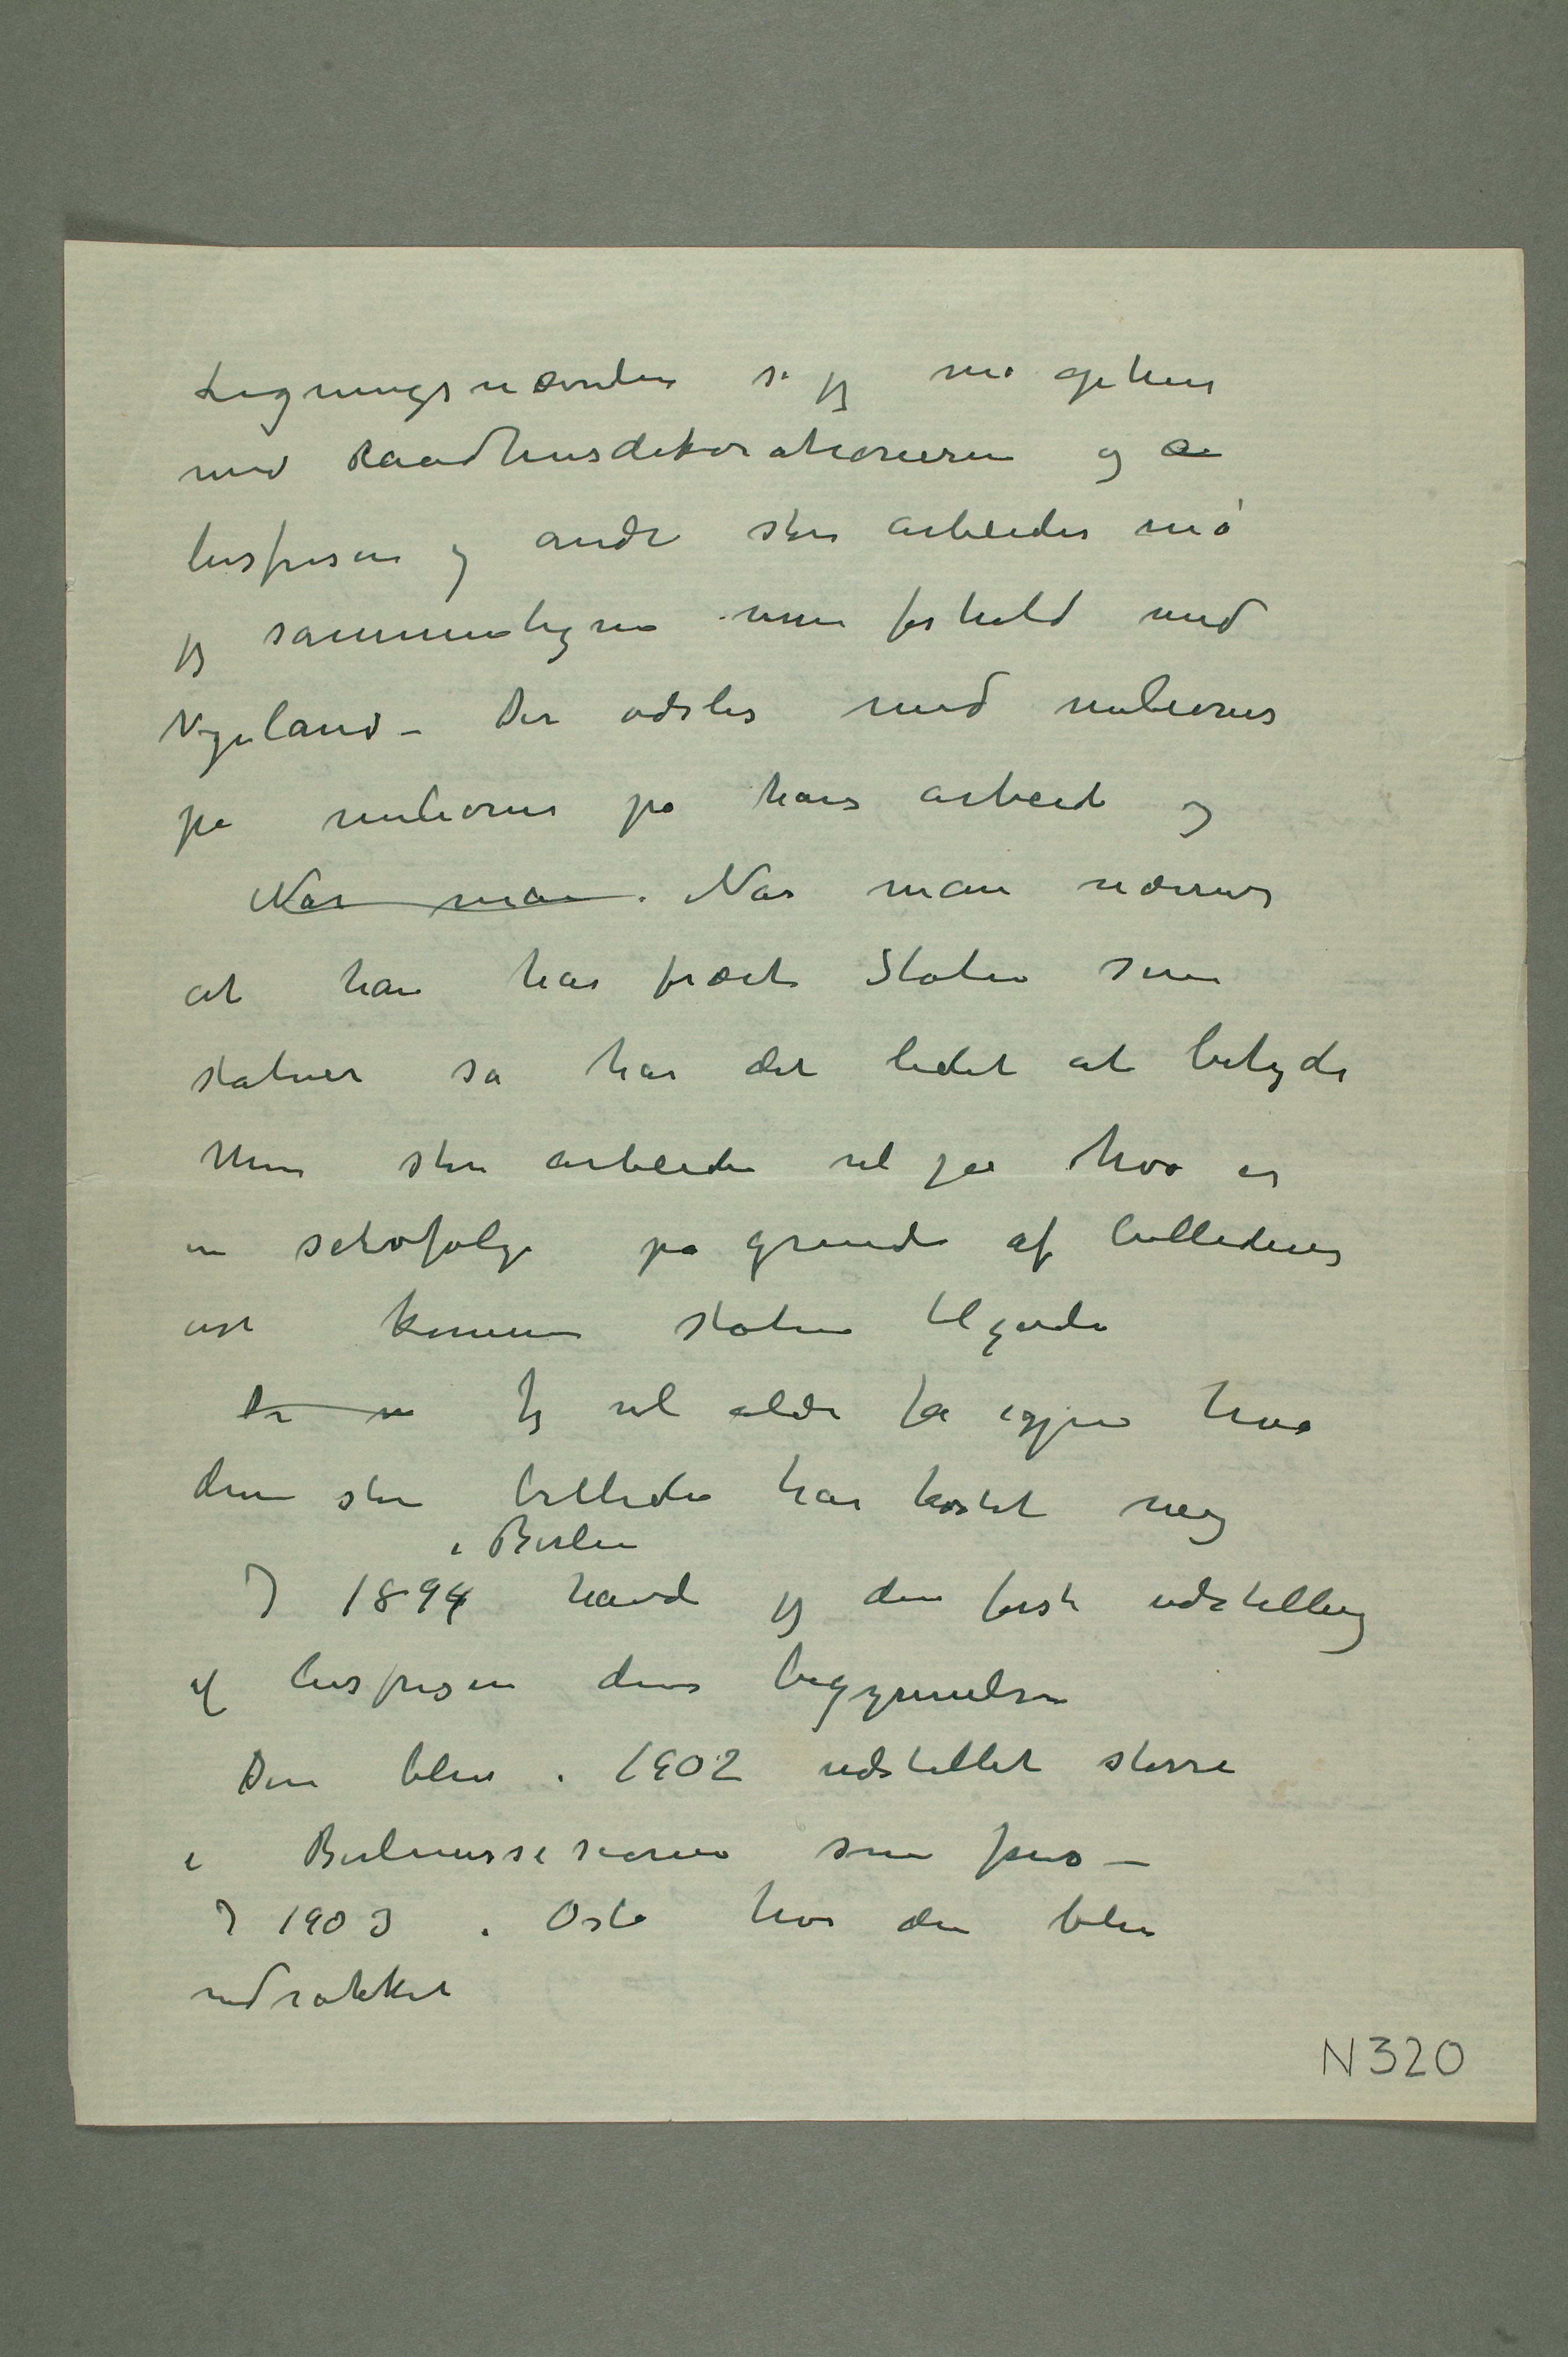 Ligningsnævnden så jeg må ophøre
med Raadhusdekorationeren og a
livsfrisen og andre store arbeider må
jeg sammenligne mine forhold med
Vigeland – Der ødsles med milioner
på milioner på hans arbeide og
Når man . Når man nævner
at han har foræret Staten sine
statuer så har det lidet at betyde
Mine store arbeider vil jo hva er
en selvfølge på grund af billedernes
art komme staten tilgode
De m Jeg vil aldri få igjen hva
dem store billeder har kostet meg
i Berlin
I 1894 havde jeg den første udstilling
af livsfrisen dens begyynnelse
Den blev i 1902 udstillet større
i Berlinersesesionen som frise –
I 1903 i Oslo hvor den blev
nedrakket
N 320